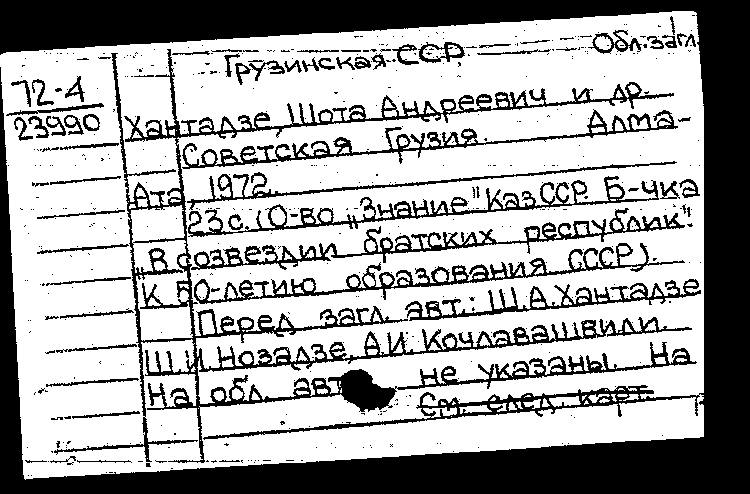 Грузинская ССР Обл.загл.
72-4
23990
Хантадзе, Шота Андреевич и др.
Советская Грузия. Алма-
Ата, 1972.
23 с. (О-во „Знание" Каз ССР. Б-чка
„В созвездии братских республик".
К 50-летию образования СССР).
Перед загл. авт.: Ш.А.Хантадзе
Ш.И.Нозадзе, А.И. Кочлавашвили.
На обл. авт. не указаны. На
См. след. карт.